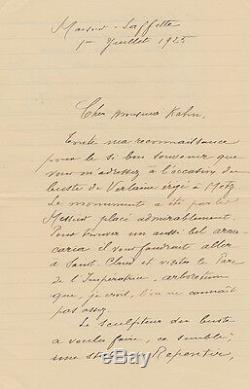 Maisons-Laffitte
1er Juillet 1925
Cher monsieur Kahn,
Toute ma reconnaissance
pour le si bon souvenir que
vous m'adressez à l'occasion du
buste de Verlaine érigé à Metz.
Le monument a été par les
Messins placé admirablement.
Pour trouver un aussi bel arau-
caria il vous faudrait aller
à Saint-Cloud et visiter le Parc
de l'Impératrice, arboretum
que, je crois, l'on ne connaît
pas assez.
Le sculpteur du buste
a voulu faire, ce semble,
une Repentir,